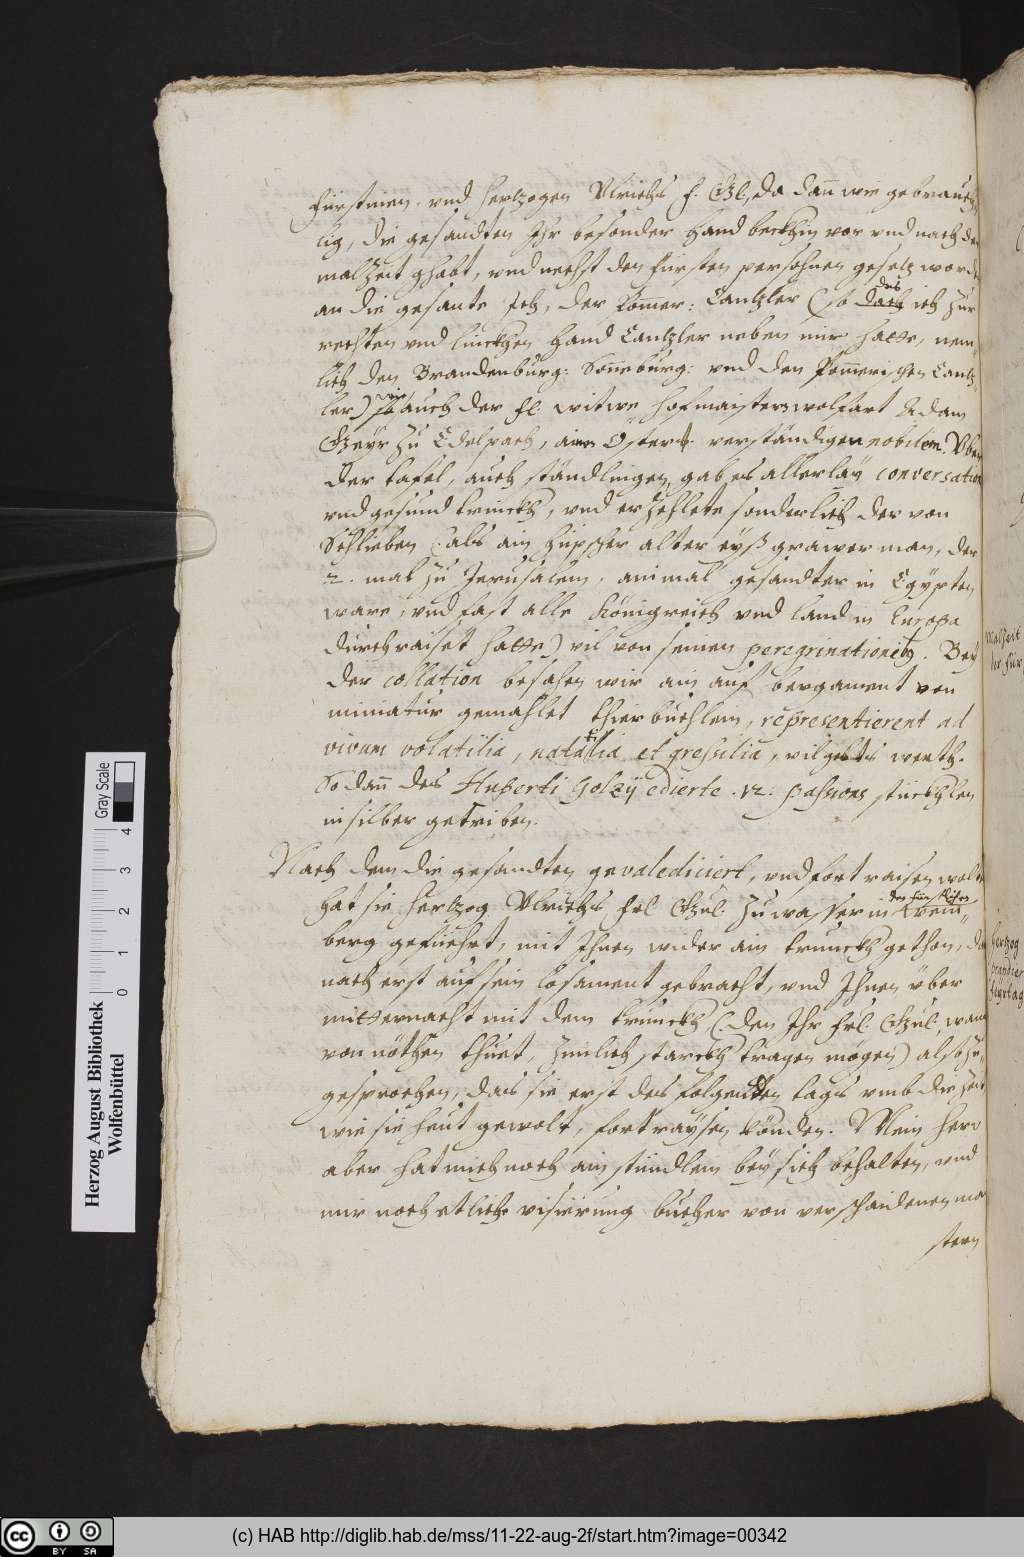 fürstinen, vnd hertzogen Vlrichs f. Gl, da dan̄ wie gebreuch
lig, die gesandten Ihr besonder hand beckhin vor vnd nach der
malzeit ghabt, vnd nechst den fürsten persohnen gesetz worde
an die gesante Ich, der Pom̄er: Cantzler (so das ich zur
rechten vnd linckhen hand Cantzler neben mir hatte, nem
lich den Brandenburg: Son̄eburg: vnd den Pom̄erischen Cantz
ler) wie auch der fl. witwe hofmaister wolfart Adam
Geyr zu Edelpach, ain Österr. verständigen nobilem. Vber
der tafel, auch ständlingen gab es allerlaÿ conversation
vnd gesund trinckh, vnd erzehlete sonderlich der von
Schlieben (als ain hüpscher alter eyß grawer man, der
2. mal zu Jerusalem, ainmal gesandter in Egÿpten
ware, vnd fast alle Königreich vnd land in Europa
durchraiset hatte) vil von seinen peregrinationen. Beÿ
der collation besahen wir ain auf bergament von
miniatur gemahlet thierbuchlein, representierent ad
vivum volatilia, natatilia et gressilia, vil gelts werth.
So dan̄ des Huberti Golzÿ edierte .12. passions stückhlen
in silber getriben.
Nach dem die gesandten gevalediciert, vnd fort raisen wolten
hat sie hertzog Vlrichs frl Gnl. zu wasser in den fürstlichen wein
berg gefüehrt, mit Ihnen wider ain trunckh gethon, da
nach erst auf sein losament gebracht, vnd Ihnen vber
mitternacht mit dem trunckh (den Ihr frl. Gnl. wann
von nöthen thuet, zimlich starckh tragen mögen) also zu
gesprochen, das sie erst des folgenden tags vmb die zeit
wie sie heut gewolt, fortraÿsen könden. Mein herr
aber hat mich noch ain stündlein beÿ sich behalten, vnd
mir noch etliche visierung bücher von verschaidenen mai
stern
Malzeit
hertzog
feÿrtag
Herzog August Bibliothek
Wolfenbüttel
Gray Scale
0 1 2 3 4
cc BY SA
(c) HAB http://diglib.hab.de/mss/11-22-aug-2f/start.htm?image=00342